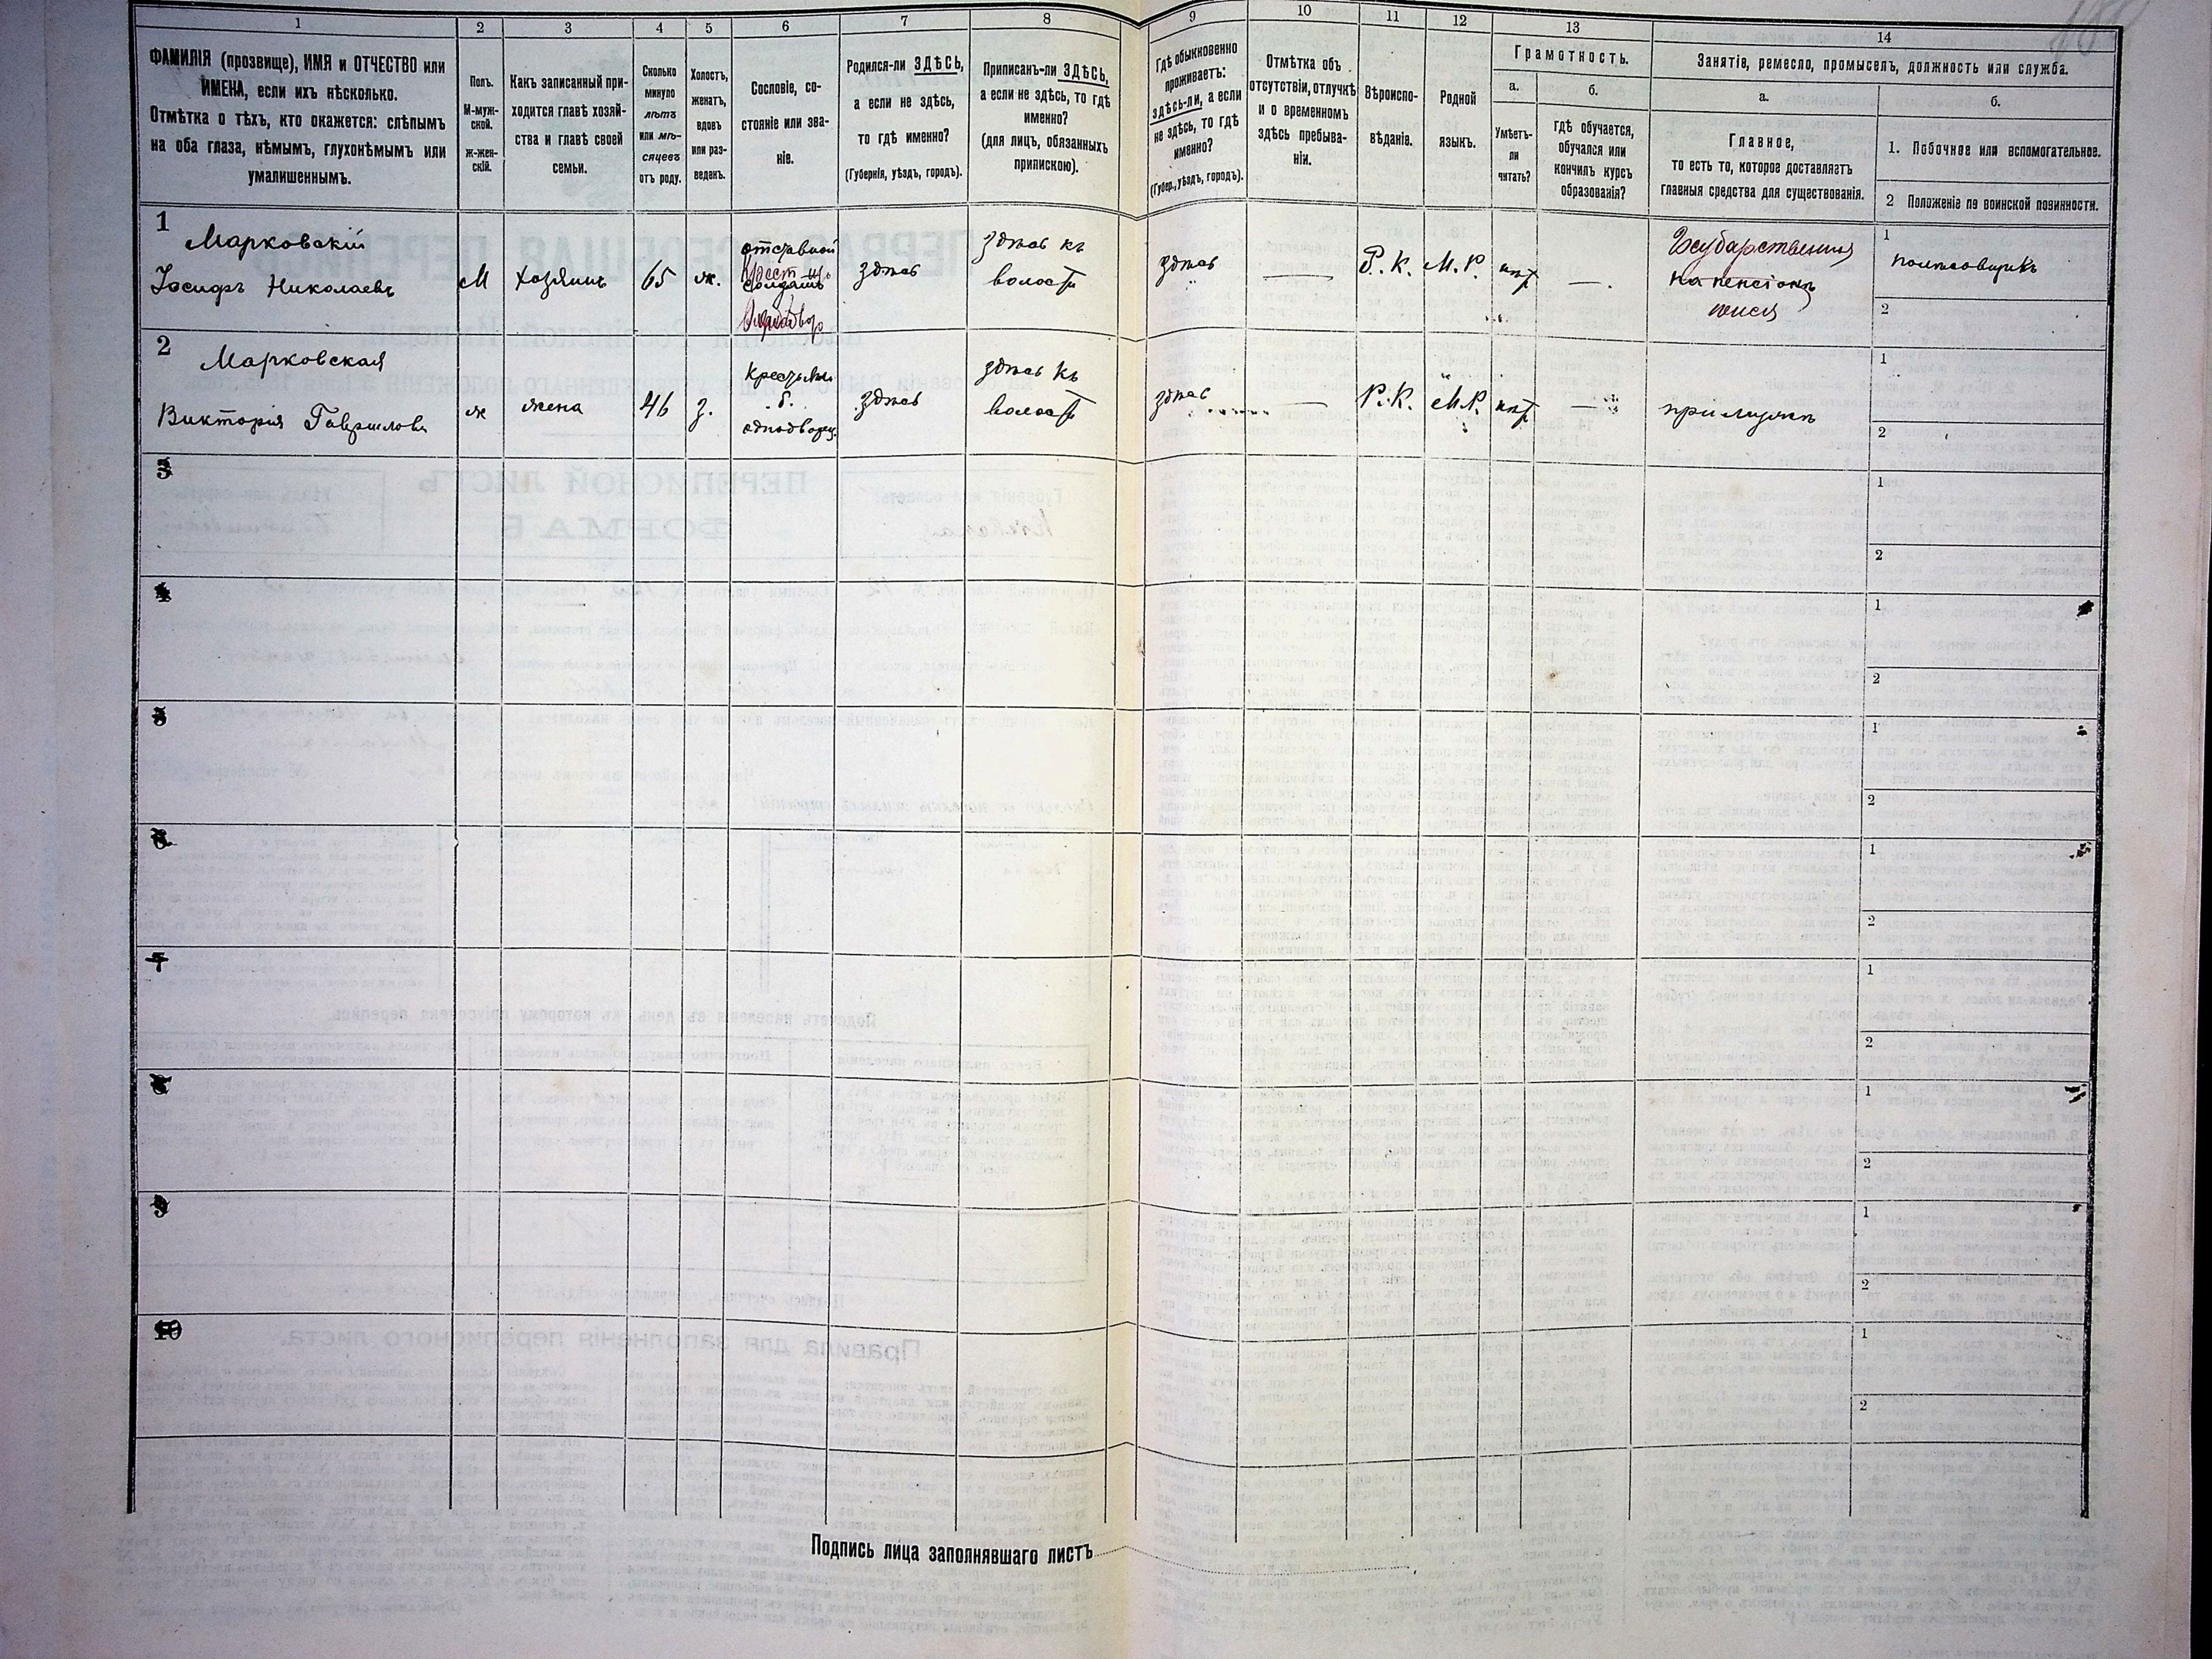 1
2
3
4
5
6
7
8
9
10
11
12
13
14
ФАМИЛІЯ (прозвище), ИМЯ и ОТЧЕСТВО или
ИМЕНА, если ихъ нѣсколько.
Отмѣтка о тѣхъ, кто окажется: слѣпымъ
на оба глаза, нѣмымъ, глухонѣмымъ или
умалишеннымъ.
Полъ.
М-муж-
ской.
Ж-жен-
скій.
Какъ записанный при-
ходится главѣ хозяй-
ства и главѣ своей
семьи.
Сколько
минуло
лѣтъ
или мѣ-
сяцевъ
отъ роду.
Холостъ,
женатъ,
вдовъ
или раз-
веденъ.
Сословіе, со-
стояніе или зва-
ніе.
Родился-ли ЗДѢСЬ,
а если не здѣсь,
то гдѣ именно?
(Губернія, уѣздъ, городъ).
Приписанъ-ли ЗДѢСЬ,
а если не здѣсь, то гдѣ
именно?
(для лицъ, обязанныхъ
припискою).
Гдѣ обыкновенно
проживаетъ:
здѣсь-ли, а если
не здѣсь, то гдѣ
именно?
(Губер., уѣздъ, городъ).
Отмѣтка объ
отсутствіи, отлучкѣ
и о временномъ
здѣсь пребыва-
ніи.
Вѣроиспо-
вѣданіе.
Родной
языкъ.
Грамотность.
а.
Умѣетъ-
ли
читать?
б.
Гдѣ обучается,
обучался или
кончилъ курсъ
образованія?
Занятіе, ремесло, промыселъ, должность или служба.
а.
Главное,
то есть то, которое доставляетъ
главныя средства для существованія.
б.
1. Побочное или вспомогательное.
2 Положеніе по воинской повинности.
1
Марковскій
Іосифъ Николаевъ
М
хозяинъ
65
ж.
отставной
солдатъ
здѣсь
здѣсь къ
волости
здѣсь
Р. К.
М. Р.
нѣт
—.
на пенсіонѣ
1
2
2
Марковская
Викторія Гаврилова
ж
жена
46
з.
крестьян.
б.
однодворец.
здѣсь
здѣсь къ
волости
здѣсь
—
Р. К.
М. Р.
нѣт
—
при мужѣ
1
2
3
1
2
4
1
2
5
1
2
6
1
2
7
1
2
8
1
2
9
1
2
10
1
2
Подпись лица заполнявшаго листъ